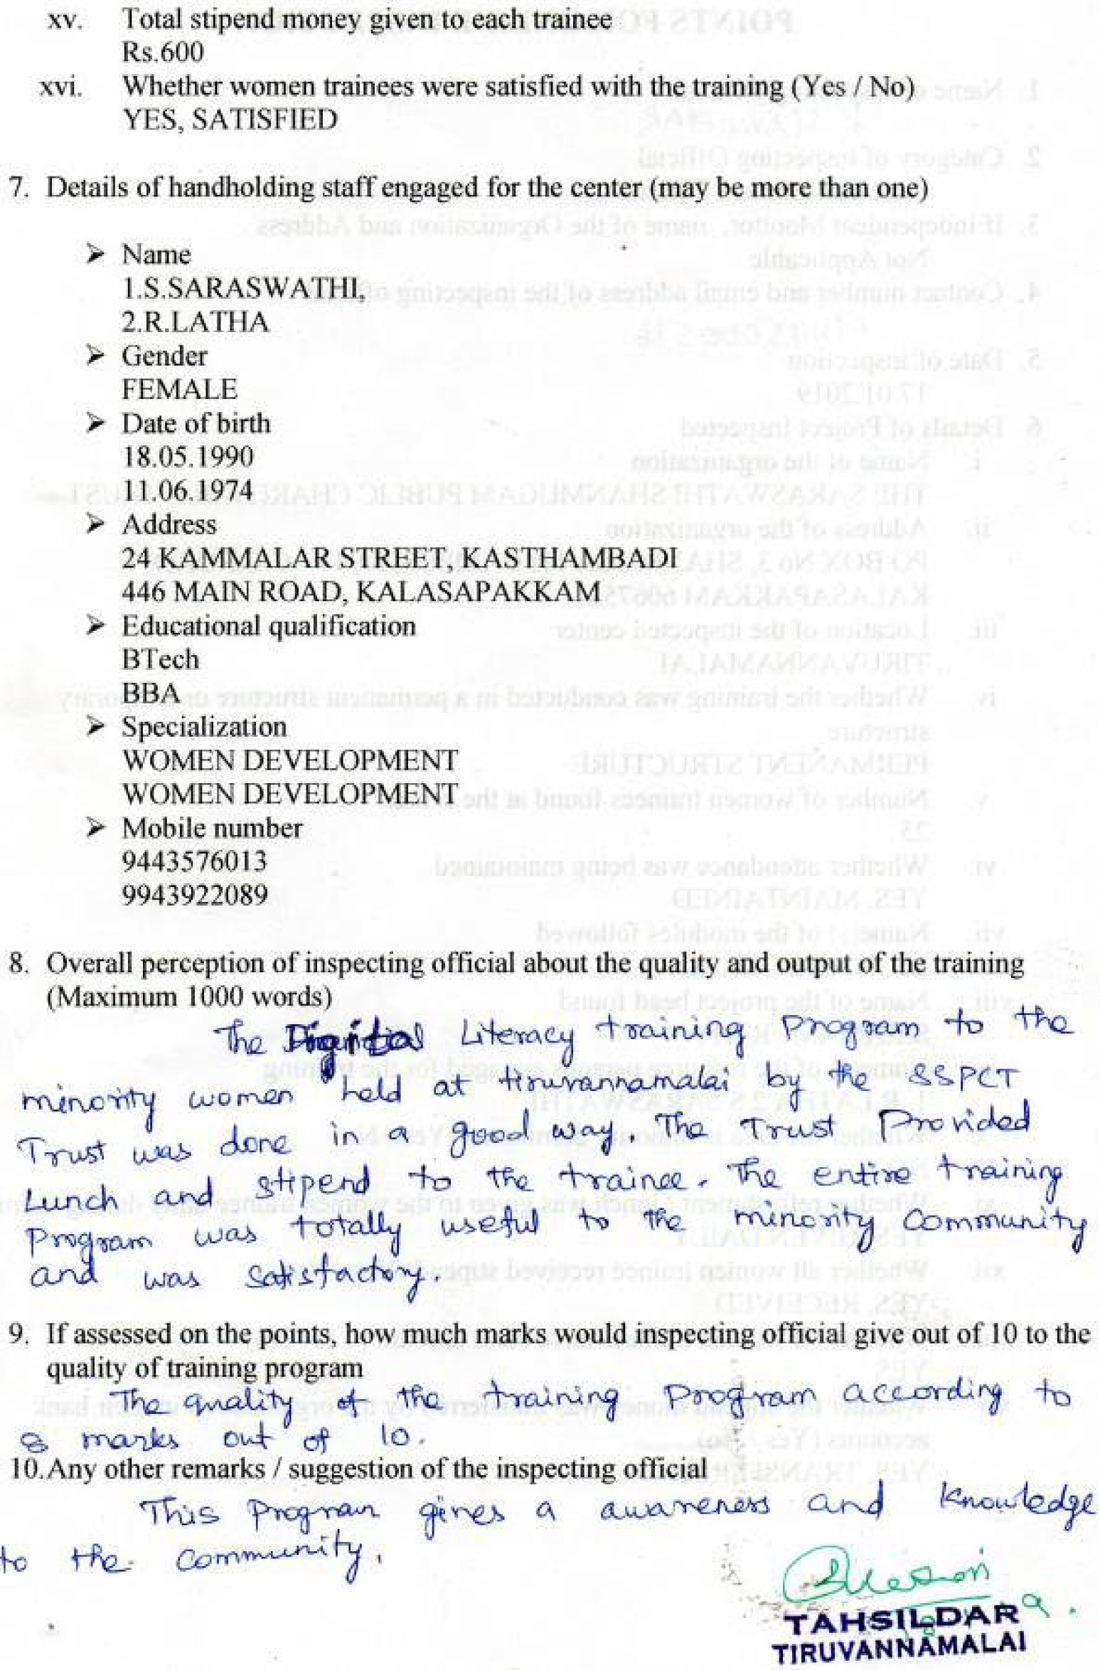 xv. Total stipend money given to each trainee
Rs.600
xvi. Whether women trainees were satisfied with the training (Yes / No)
YES, SATISFIED
7. Details of handholding staff engaged for the center (may be more than one)
➢ Name
1.S.SARASWATHI,
2.R.LATHA
➢ Gender
FEMALE
➢ Date of birth
18.05.1990
11.06.1974
➢ Address
24 KAMMALAR STREET, KASTHAMBADI
446 MAIN ROAD, KALASAPAKKAM
➢ Educational qualification
BTech
BBA
➢ Specialization
WOMEN DEVELOPMENT
WOMEN DEVELOPMENT
➢ Mobile number
9443576013
9943922089
8. Overall perception of inspecting official about the quality and output of the training
(Maximum 1000 words)
The Digital Literacy training Program to the
minority women held at tiruvannamalai by the SSPCT
Trust was done in a good way. The Trust Provided
Lunch and stipend to the trainee. The entire training
Program was totally useful to the minority Community
and was Satisfactory.
9. If assessed on the points, how much marks would inspecting official give out of 10 to the
quality of training program
The quality of the training Program according to
8 marks out of 10.
10.Any other remarks / suggestion of the inspecting official
This Program gives a awareness and knowledge
to the Community.
TAHSILDAR
TIRUVANNAMALAI